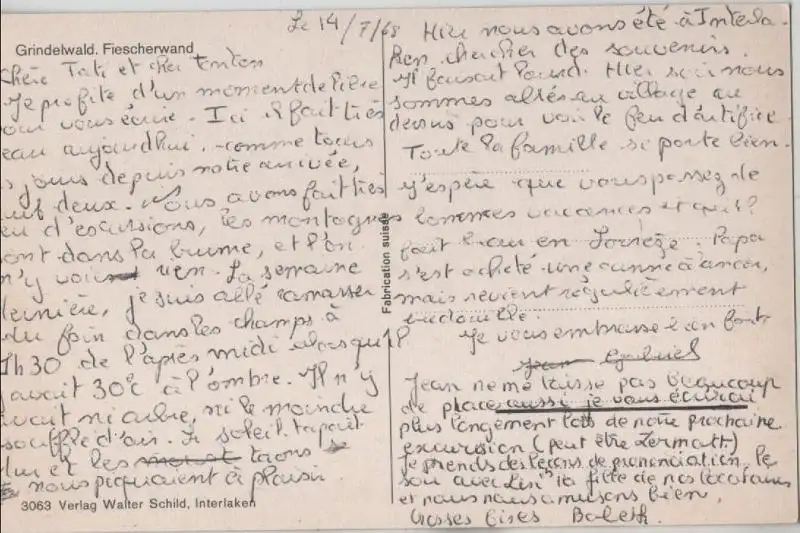 Grindelwald. Fiescherwand
Chère Tati et cher tonton
Je profite d'un moment de libre
pour vous écrire. Ici il fait très
beau aujourd'hui, comme tous
les jours depuis notre arrivée,
sauf deux. Nous avons fait très
peu d'excursions, les montagnes
sont dans la brume, et l'on
n'y voit rien. La semaine
dernière, je suis allé ramasser
du foin dans les champs à
1h30 de l'après midi alors qu'il
y avait 30°c à l'ombre. Il n'y
avait ni arbre, ni le moindre
souffle d'air. Le soleil tapait
dur et les taons
nous piquaient à plaisir
3063 Verlag Walter Schild, Interlaken
Fabrication suisse
Le 14/7/68
Hier nous avons été à Interla-
ken chercher des souvenirs.
Il faisait lourd. Hier soir nous
sommes allés au village au
dessus pour voir le feu d'artifice.
Toute la famille se porte bien.
J'espère que vous passez de
bonnes vacances et qu'il
fait beau en . Papa
s'est acheté une canne à ,
mais revient régulièrement
bredouille.
Je vous embrasse bien fort
Jean Gabriel
Jean ne me laisse pas beaucoup
de place aussi je vous écrirai
plus longement lors de notre prochaine
excursion (peut être Zermatt)
Je prends des leçons de prononciation le
soir avec la fille de nos locataires
et nous nous amusons bien,
Grosses bises Babeth.